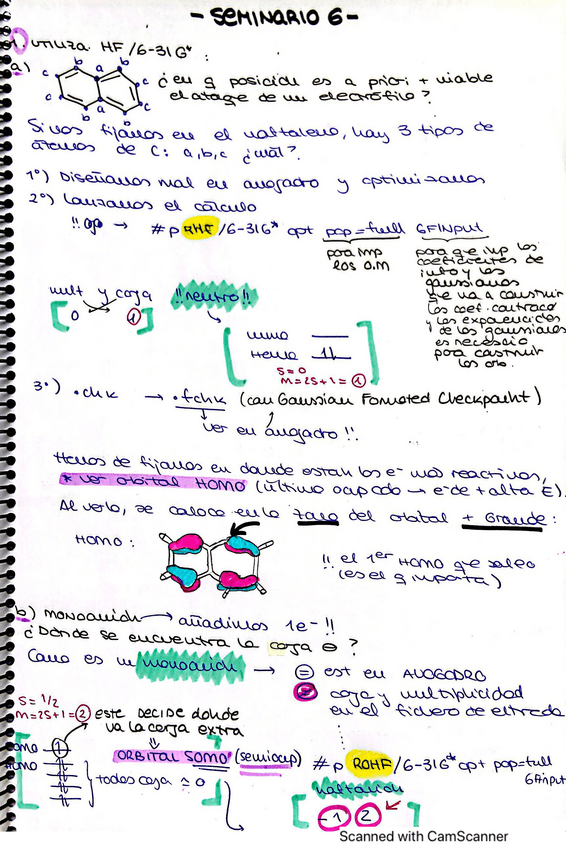 - SEMINARIO 6 -
1. Utiliza HF/6-31G* :
a)
b b
c a c
c a c
b b
¿en q posición es a priori + viable
el ataque de un electrófilo?
Si nos fijamos en el naftaleno, hay 3 tipos de
átomos de C: a, b, c ¿cuál?
1º) Diseñamos mol en avogadro y optimizamos
2º) Lanzamos el cálculo
!! op → #p RHF/6-31G* opt pop=full GFINPUT
para imp
los O.M
para que imp los
coeficientes de
los
gaussianas
que va a construir
los coef. contracc
y los exponenciales
de las gaussianas
es necesario
para construir
los orb.
mult y carga
[ 0 1 ]
!! neutro !!
LUMO
HOMO
S=0
M=2S+1= 1
3º) .chk → .fchk (con Gaussian Formated Checkpoint)
ver en avogadro !!
Hemos de fijarnos en donde estan los e⁻ más reactivos,
* ver orbital HOMO (último ocupado → e⁻ de + alta E).
Al verlo, se coloca en la zona del orbital + Grande:
HOMO:
!! el 1er HOMO que salga
(es el q importa)
b) monoanión → añadimos 1e⁻ !!
¿Dónde se encuentra la carga ⊖ ?
Como es un monoanión → = est en AVOGADRO
≠ carga y multiplicidad
en el fichero de entrada
S=1/2
M=2S+1= 2
este decide donde
va la carga extra
ORBITAL SOMO (semiocup)
HOMO
todos carga ≈ 0
#p ROHF/6-31G* opt pop=full
GFinput
naftanión
[ -1 2 ]
Scanned with CamScanner